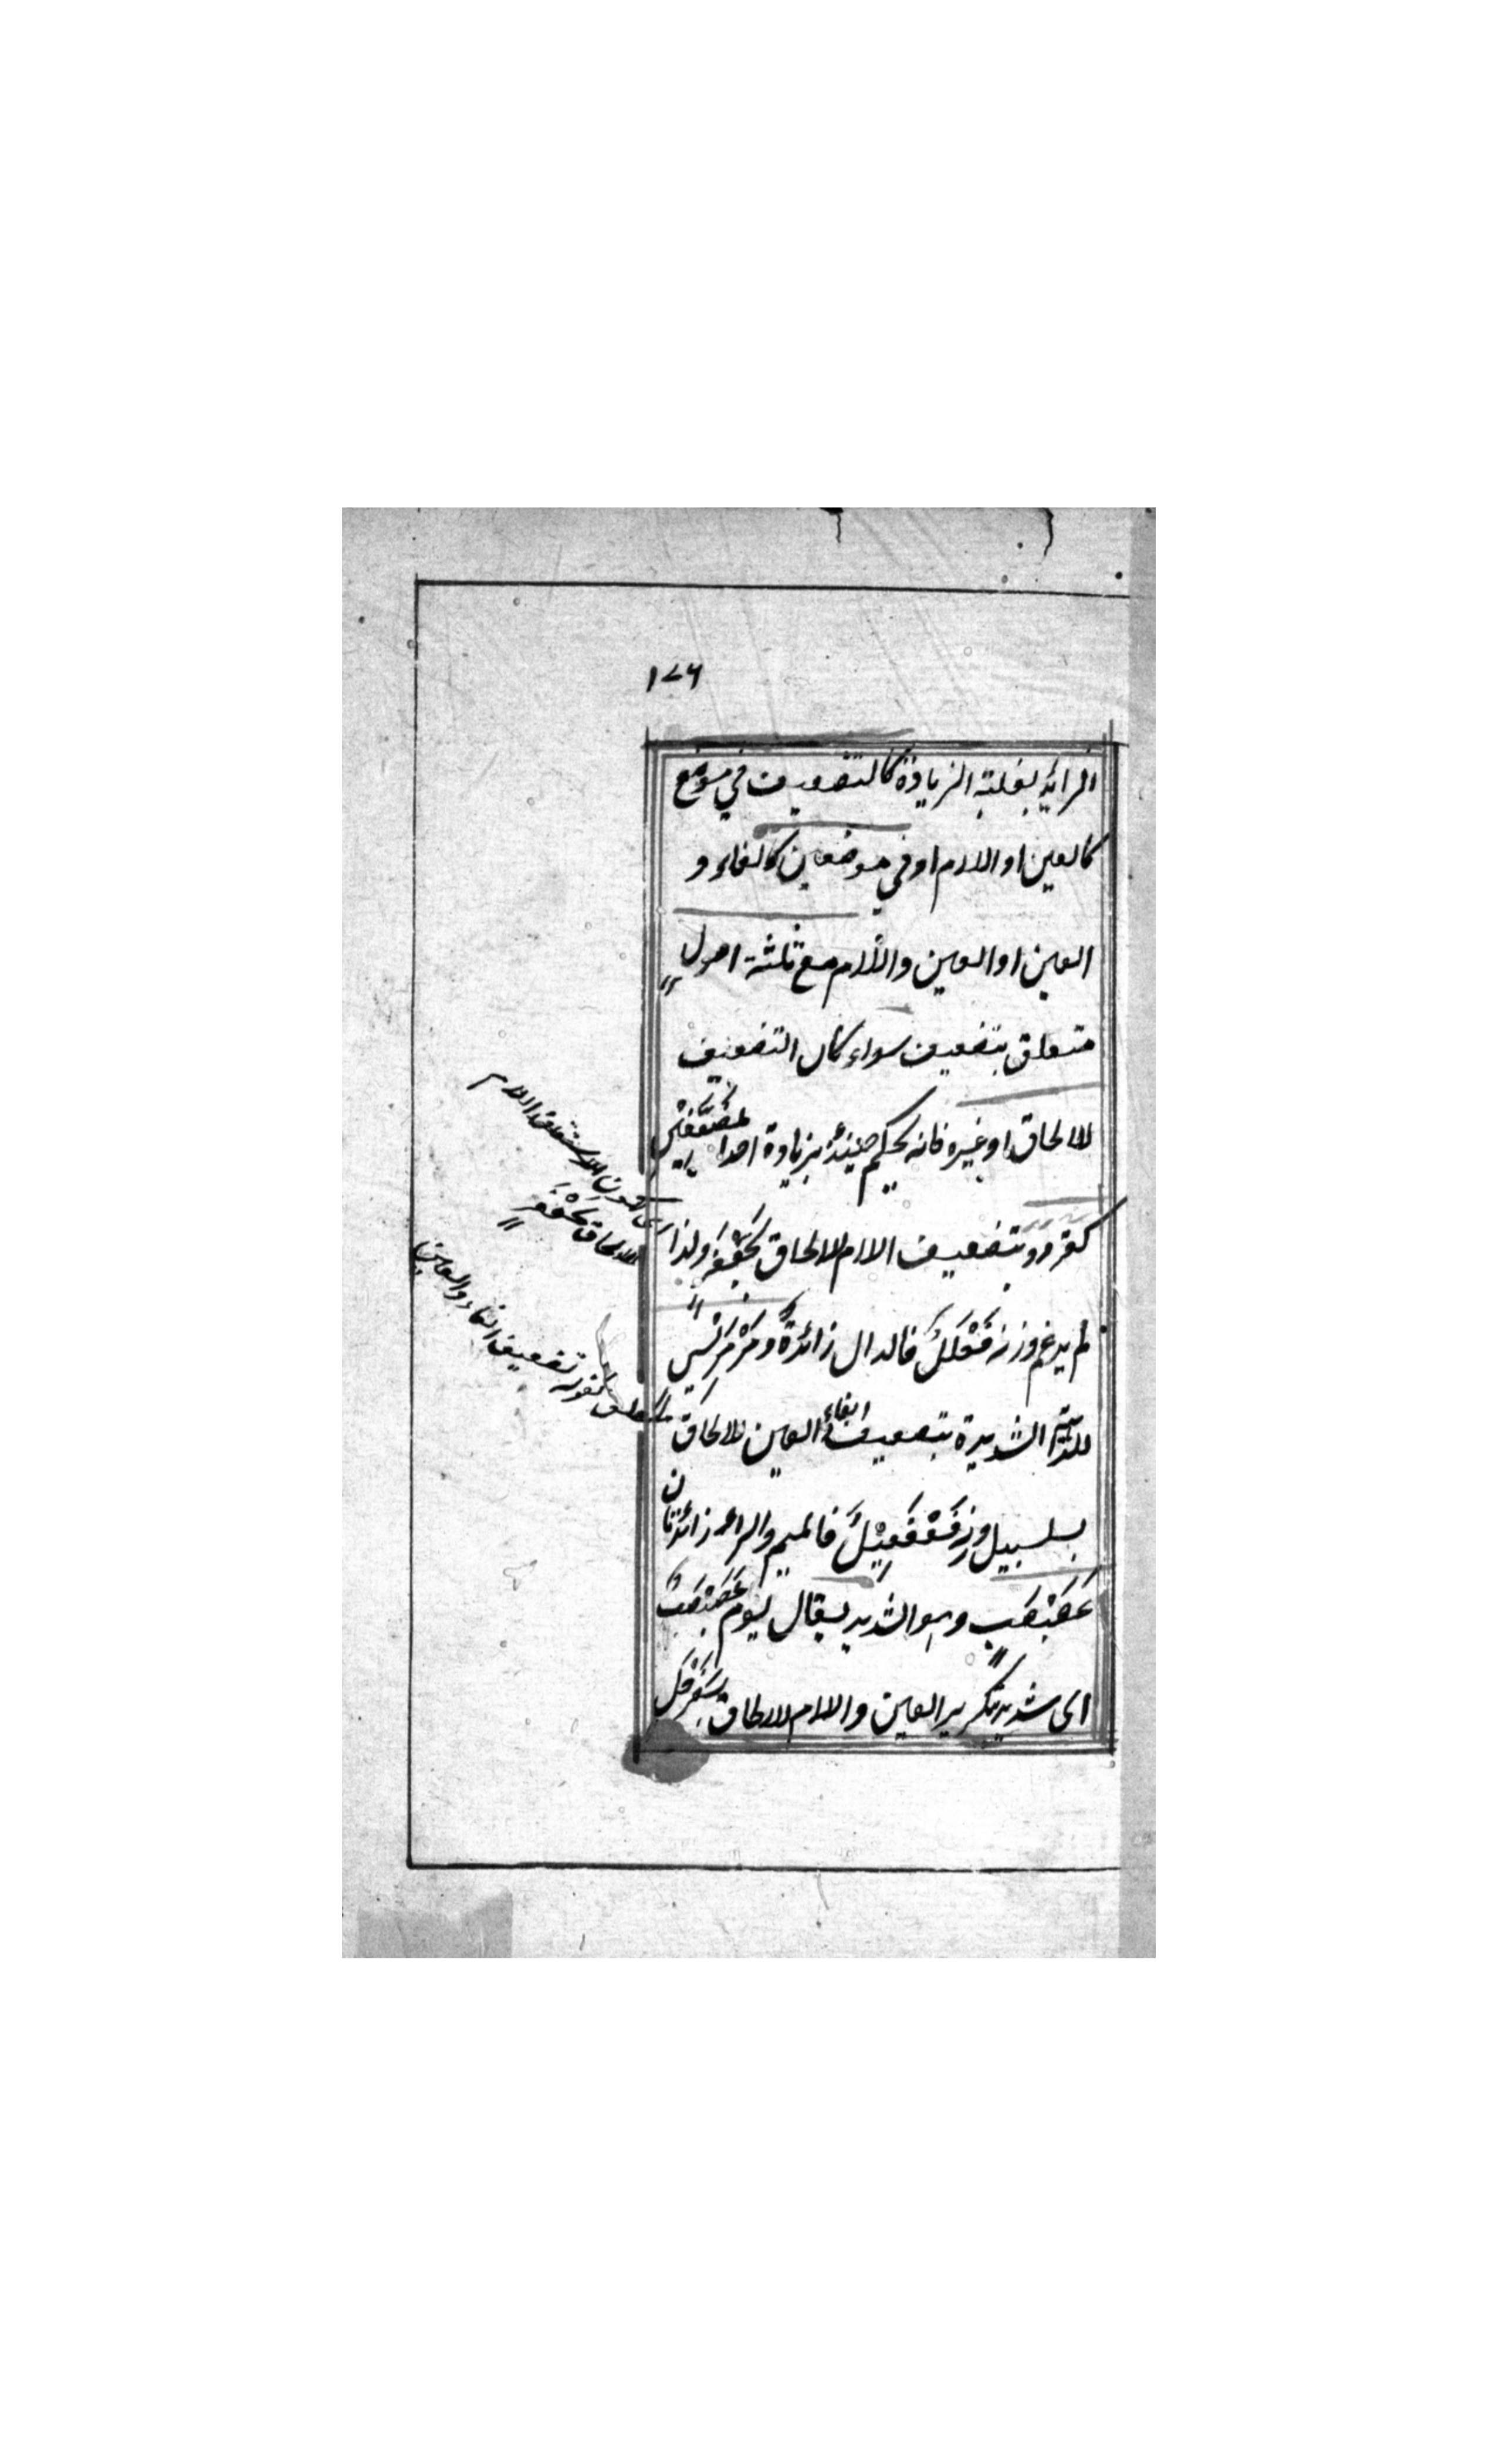 ١٧٦
الزايد بغلبة الزيادة كالتضعيف في موضع
كالعين او اللام او في موضعين كالفاء و
العين او العين واللام مع ثلثة اصول
متعلق بتضعيف سواء كان التضعيف
للالحاق او غيره فانه يحكم حينئذ بزيادة احدا لمضعّفين
كقردد بتضعيف اللام للالحاق بجَعْفَر ولذا
لم يدغم وزنه فَعْلَلٌ فالدال زائدةٌ ومَرْمَرِيْسٍ
للداهية الشديدة بتضعيف الفاء العين للالحاق
بسلسبيل وزنه فَعْفَعِيْلٌ فالميم والراء زائدتان
عَصَبْصَبٍ وهو الشديد يقال يوم عَصَبْصَبٌ
اى شديد بتكرير العين واللام للالحاق بسَفَرْجَل
للالحاق بجَعْفَرٍ
متعلق بقوله تضعيف الفاء والعين